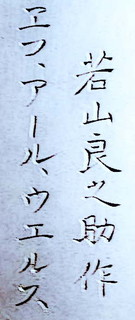 若山良之助作
ヱフ、アール、ウエルス